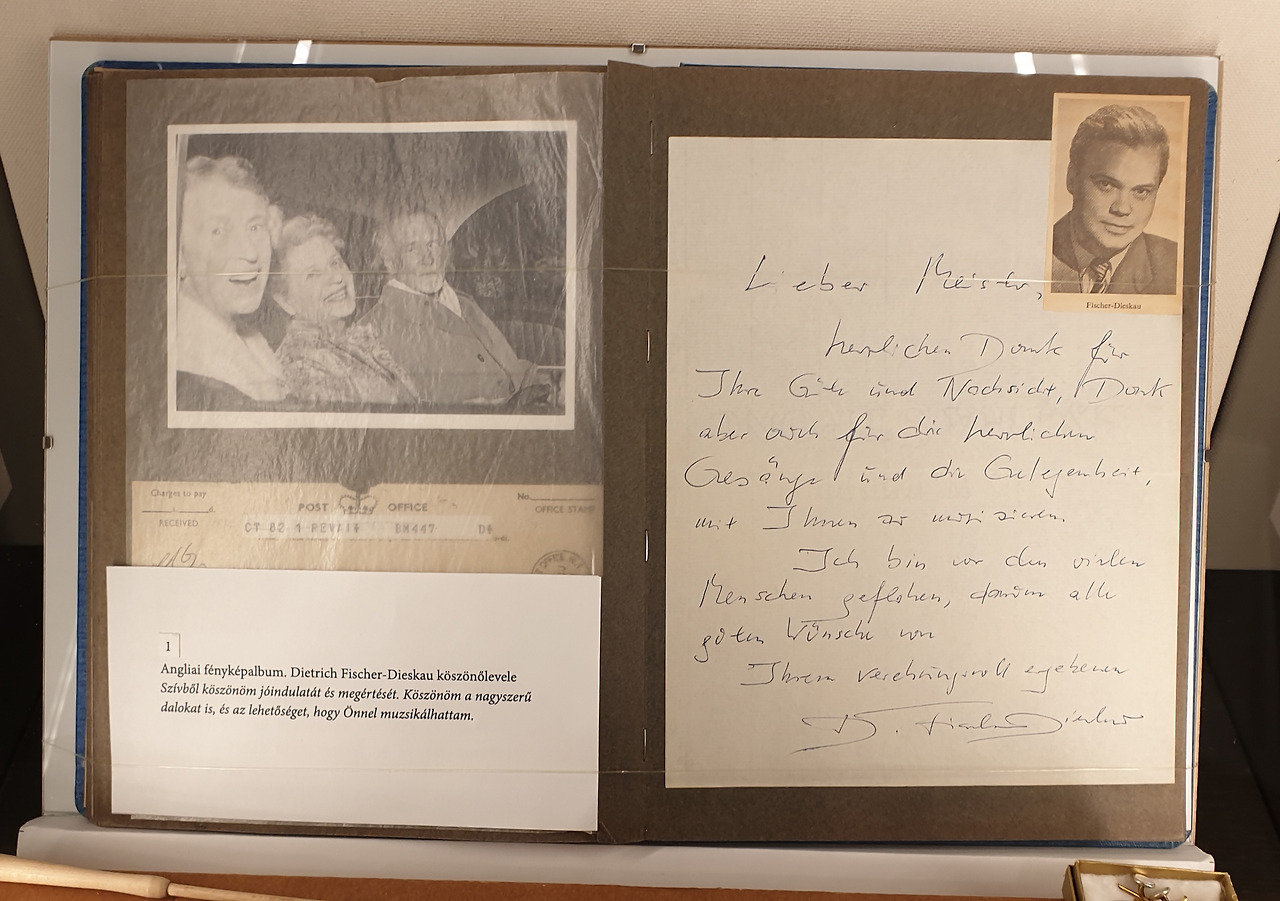 Charges to pay
RECEIVED
POST OFFICE
No.
OFFICE STAMP
CT 82 1 REVAI+ BM447 D+
1
Angliai fényképalbum. Dietrich Fischer-Dieskau köszönőlevele
Szívből köszönöm jóindulatát és megértését. Köszönöm a nagyszerű
dalokat is, és az lehetőséget, hogy Önnel muzsikálhattam.
Fischer-Dieskau
Lieber Meister,
herzlichen Dank für
Ihre Güte und Nachsicht, Dank
aber auch für die herrlichen
Gesänge und die Gelegenheit,
mit Ihnen zu musizieren.
Ich bin vor den vielen
Menschen geflohen, darum alle
guten Wünsche von
Ihrem verehrungsvoll ergebenen
D. Fischer-Dieskau